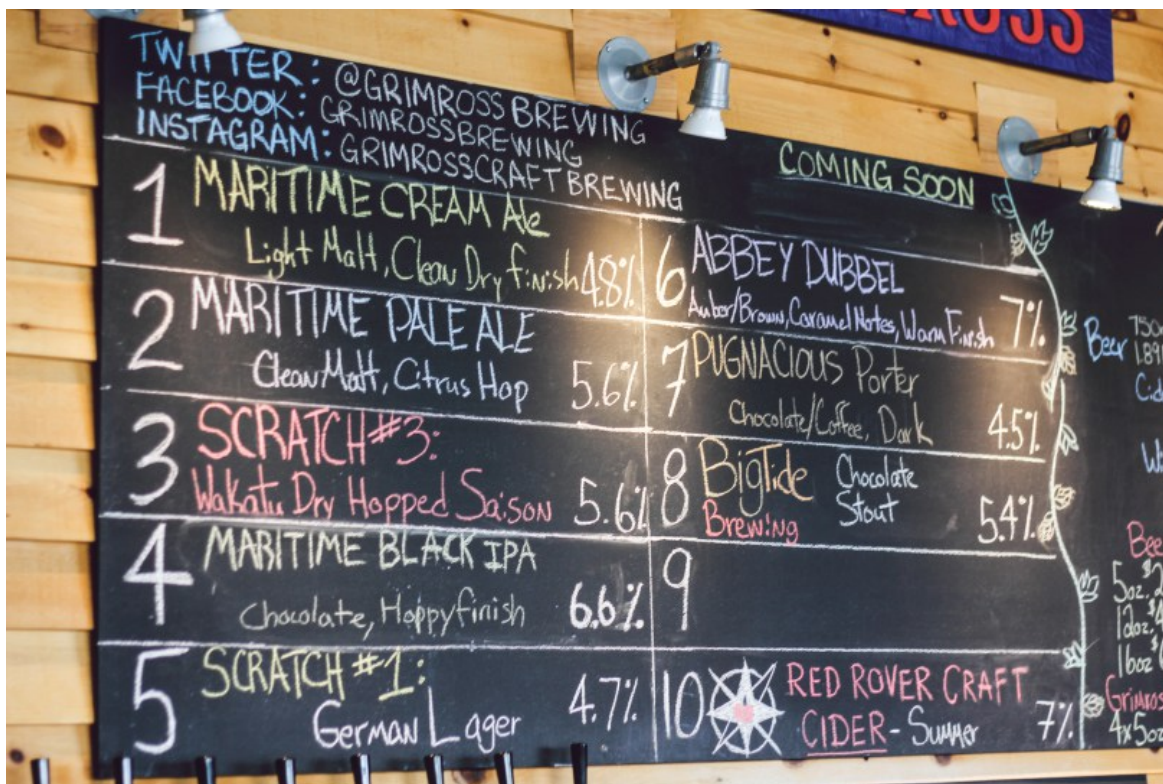 ROSS
TWITTER: @GRIMROSS BREWING
FACEBOOK: GRIMROSSBREWING
INSTAGRAM: GRIMROSSCRAFT BREWING
1 MARITIME CREAM Ale
Light Malt, Clean Dry finish 4.8%
2 MARITIME PALE ALE
Clean Malt, Citrus Hop 5.6%
3 SCRATCH #3:
Wakatu Dry Hopped Saison 5.6%
4 MARITIME BLACK IPA
Chocolate, Hoppy finish 6.6%
5 SCRATCH #1:
German Lager 4.7%
COMING SOON
6 ABBEY DUBBEL
Amber/Brown, Caramel Notes, Warm Finish 7%
7 PUGNACIOUS Porter
Chocolate/Coffee, Dark 4.5%
8 BIGTIDE Chocolate
Brewing Stout 5.4%
9
10 RED ROVER CRAFT
CIDER - Summer 7%
Beer
5oz. $2
12oz. $
16oz $
Grimross
4x5oz